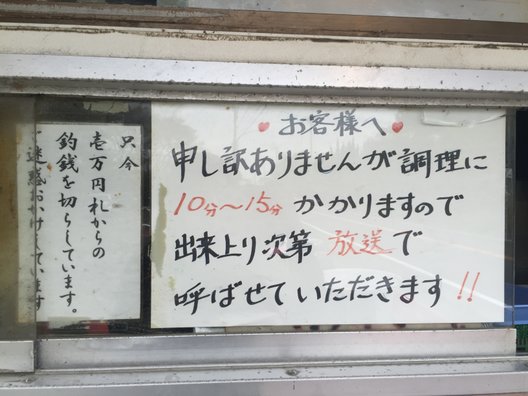 お客様へ
申し訳ありませんが調理に
10分〜15分かかりますので
出来上り次第 放送で
呼ばせていただきます!!
只今
壱万円札からの
釣銭を切らしています。
ご迷惑おかけしています